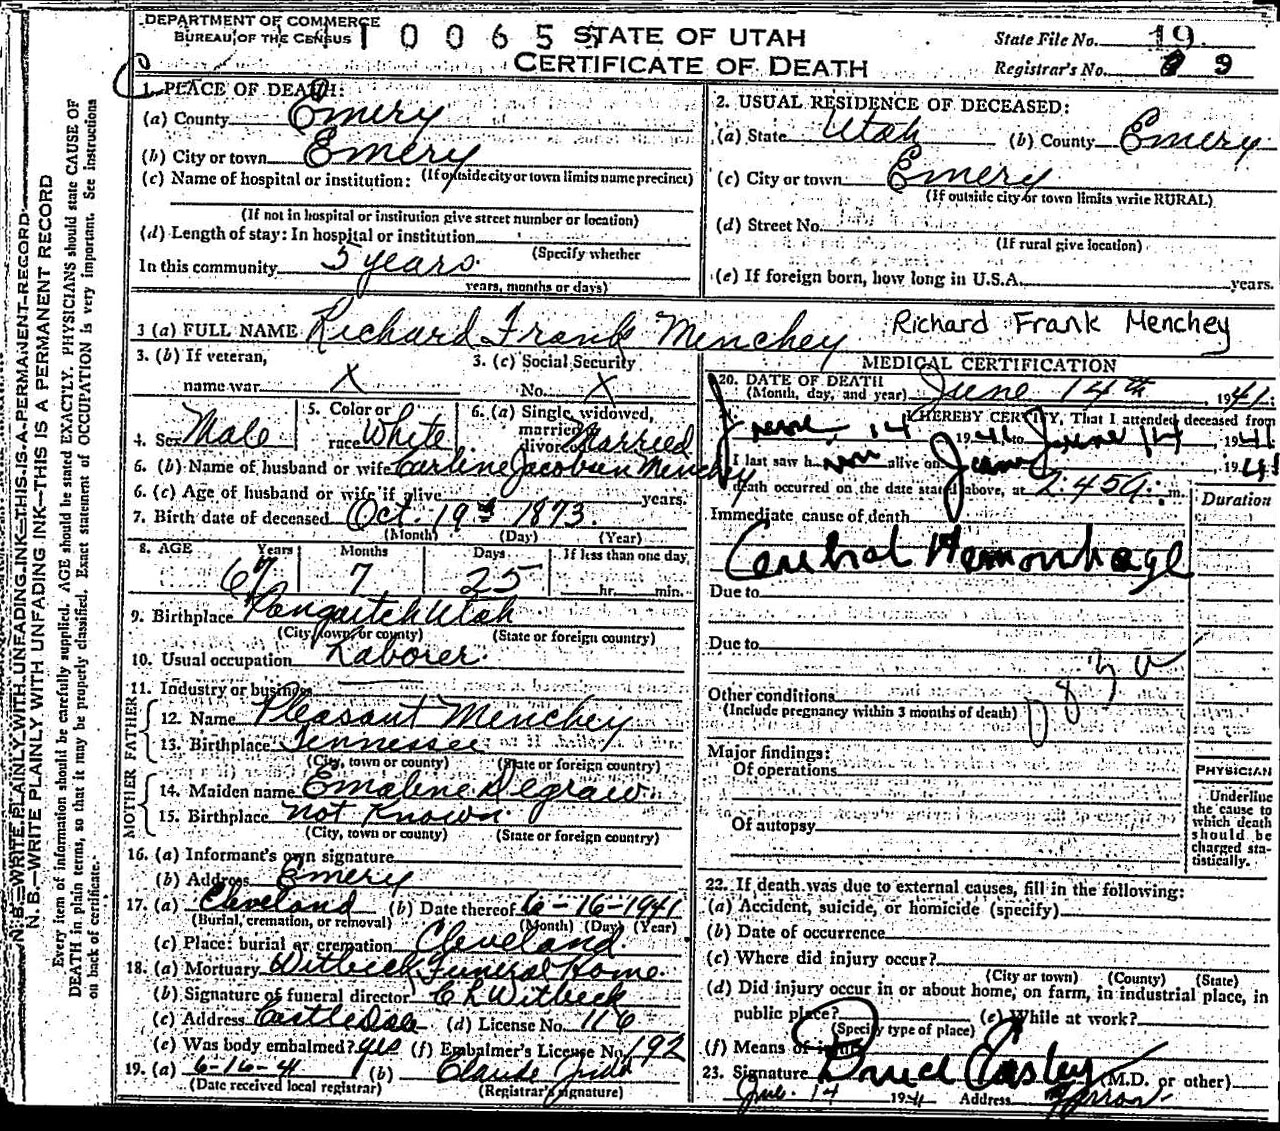 DEPARTMENT OF COMMERCE
BUREAU OF THE CENSUS
1 0 0 6 5
STATE OF UTAH
CERTIFICATE OF DEATH
State File No. 19
Registrar's No. 9
1. PLACE OF DEATH:
(a) County Emery
(b) City or town Emery
(If outside city or town limits name precinct)
(c) Name of hospital or institution:
(If not in hospital or institution give street number or location)
(d) Length of stay: In hospital or institution
(Specify whether
In this community 5 years.
years, months or days)
2. USUAL RESIDENCE OF DECEASED:
(a) State Utah (b) County Emery
(c) City or town Emery
(If outside city or town limits write RURAL)
(d) Street No.
(If rural give location)
(e) If foreign born, how long in U.S.A. years.
3 (a) FULL NAME Richard Frank Menchey Richard Frank Menchey
3. (b) If veteran,
name war X
3. (c) Social Security
No. X
4. Sex Male
5. Color or
race White
6. (a) Single, widowed,
married,
divorced Married
6. (b) Name of husband or wife Earline Jacobsen Menchey
6. (c) Age of husband or wife if alive years.
7. Birth date of deceased Oct. 19 1873.
(Month) (Day) (Year)
8. AGE Years Months Days If less than one day
67 7 25 hr. min.
9. Birthplace Panguitch Utah
(City, town, or county) (State or foreign country)
10. Usual occupation Laborer.
11. Industry or business
FATHER
12. Name Pleasant Menchey
13. Birthplace Tennessee
(City, town or county) (State or foreign country)
MOTHER
14. Maiden name Emaline Degraw.
15. Birthplace not Known.
(City, town or county) (State or foreign country)
16. (a) Informant's own signature
(b) Address Emery
17. (a) Cleveland (b) Date thereof 6-16-1941
(Burial, cremation, or removal) (Month) (Day) (Year)
(c) Place: burial or cremation Cleveland.
18. (a) Mortuary Witbeck Funeral Home.
(b) Signature of funeral director C L Witbeck
(c) Address Castle Dale (d) License No. 116
(e) Was body embalmed? yes (f) Embalmer's License No. 192
19. (a) 6-16-41 (b) Claude
(Date received local registrar) (Registrar's signature)
MEDICAL CERTIFICATION
20. DATE OF DEATH June 14th, 1941.
(Month, day, and year)
I HEREBY CERTIFY, That I attended deceased from
June 14 1941 to June 14, 1941
I last saw h alive on June, 1941
death occurred on the date stated above, at 2:45 a. m.
Duration
Immediate cause of death
Cerebral Hemorrhage
Due to
Due to
Other conditions
(Include pregnancy within 3 months of death)
Major findings:
Of operations
Of autopsy
PHYSICIAN
Underline
the cause to
which death
should be
charged sta-
tistically.
22. If death was due to external causes, fill in the following:
(a) Accident, suicide, or homicide (specify)
(b) Date of occurrence
(c) Where did injury occur?
(City or town) (County) (State)
(d) Did injury occur in or about home, on farm, in industrial place, in
public place? (e) While at work?
(Specify type of place)
(f) Means of injury
23. Signature Easley (M.D. or other)
14 1941 Address Ferron
N. B.—WRITE PLAINLY WITH UNFADING INK—THIS IS A PERMANENT RECORD
N. B.—WRITE PLAINLY WITH UNFADING INK—THIS IS A PERMANENT RECORD
Every item of information should be carefully supplied. AGE should be stated EXACTLY. PHYSICIANS should state CAUSE OF
DEATH in plain terms, so that it may be properly classified. Exact statement of OCCUPATION is very important. See instructions
on back of certificate.